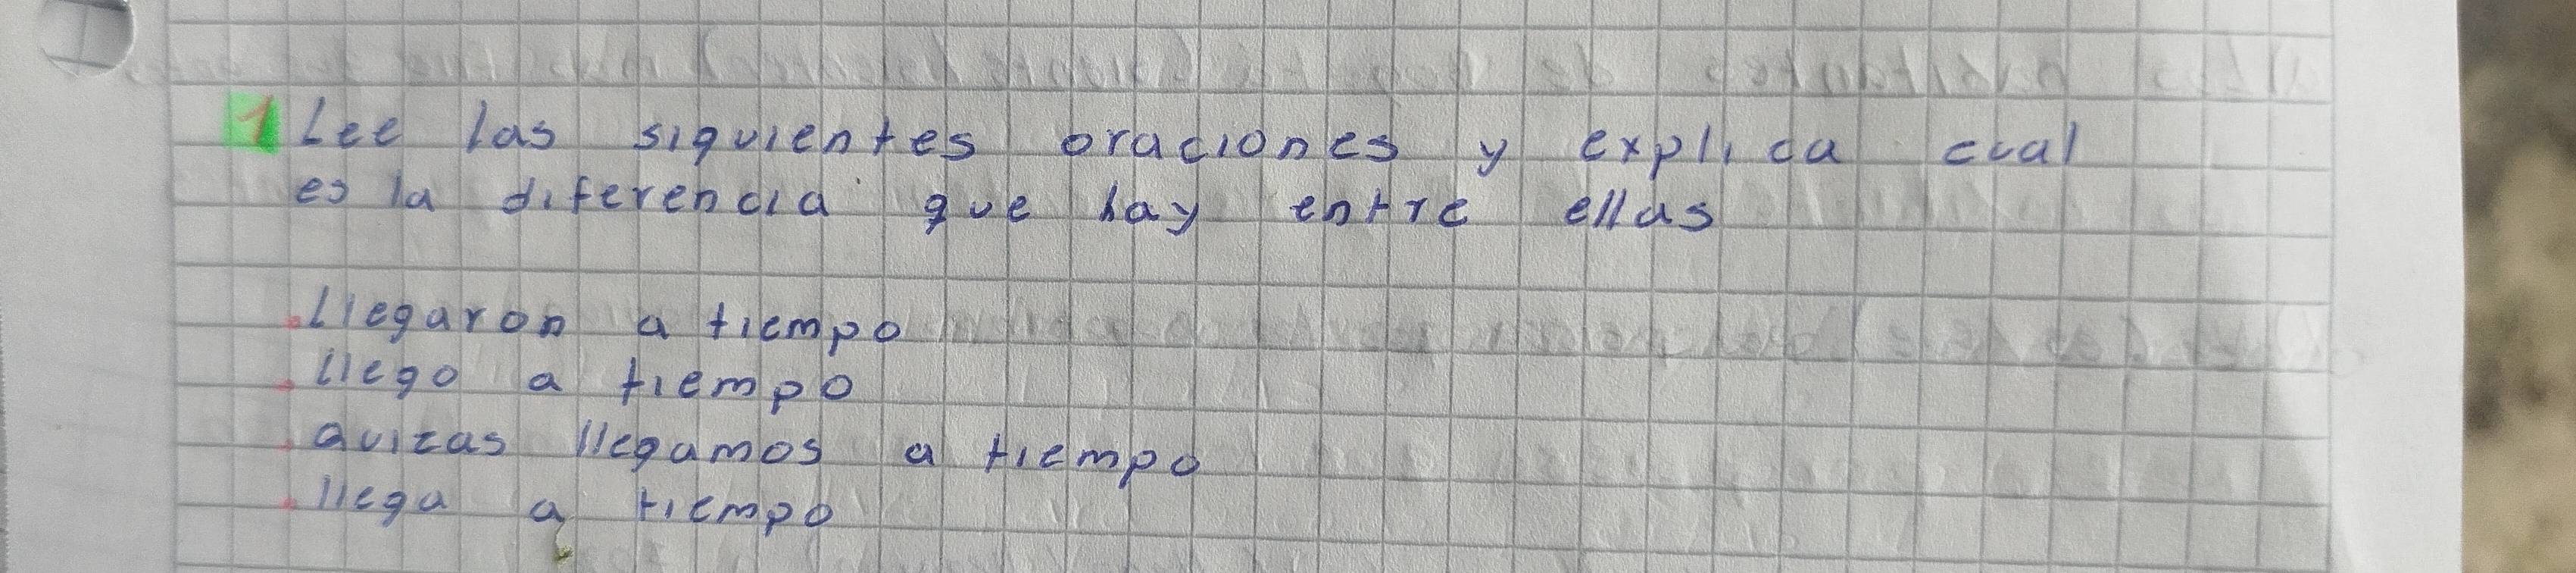 1 Lee las siguientes oraciones y explica cual
es la diferencia que hay entre ellas
.Llegaron a tiempo
.llego a tiempo
.Quizas llegamos a tiempo
.llega a tiempo